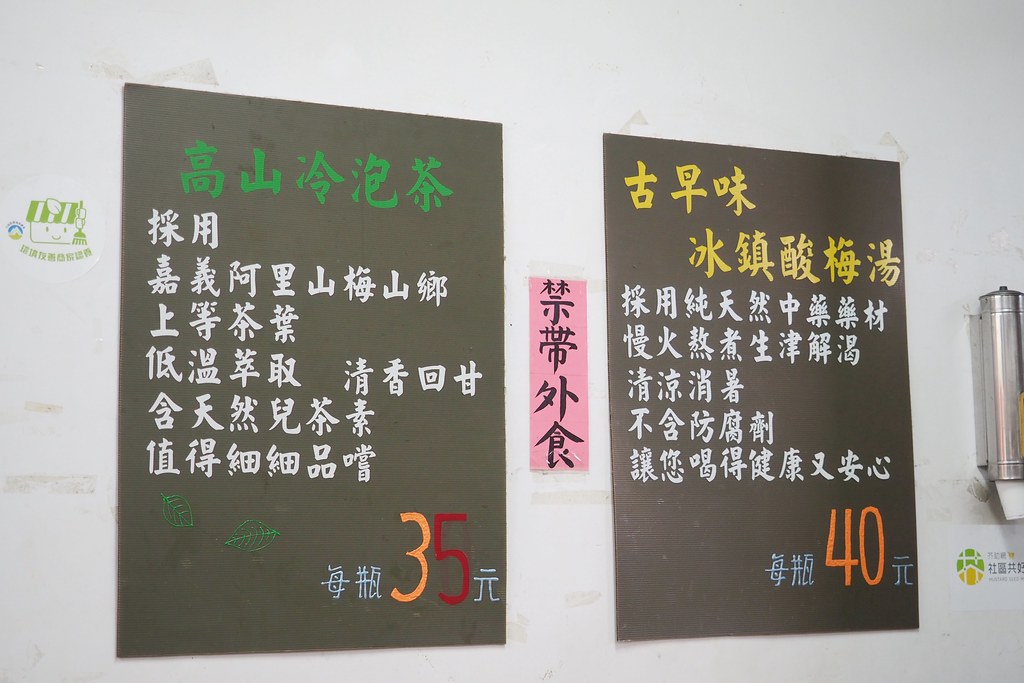 高山冷泡茶
採用
嘉義阿里山梅山鄉
上等茶葉
低溫萃取 清香回甘
含天然兒茶素
值得細細品嚐
每瓶35元
禁帶外食
古早味
冰鎮酸梅湯
採用純天然中藥藥材
慢火熬煮生津解渴
清涼消暑
不含防腐劑
讓您喝得健康又安心
每瓶40元
環境友善商家認養
社區共好